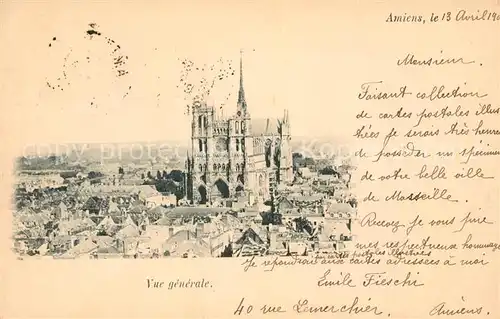 Amiens, le 13 Avril 190
Monsieur.
Faisant collection
de cartes postales illus
trées je serais très heure
de posséder un spécimen
de votre belle ville
de Marseille.
Recevez je vous prie
mes respectueux hommages
Je répondrai aux cartes adressées à moi
par cartes postales illustrées
Vue générale.
Emile Fieschi
40 rue Lemerchier. Amiens.